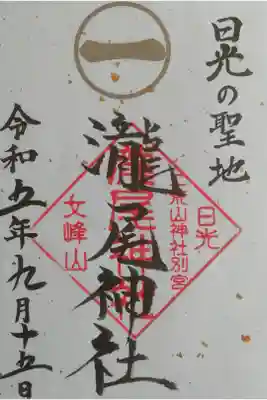 一
日光の聖地
瀧尾神社
令和五年九月十五日
日光
二荒山神社別宮
瀧尾神社
女峰山